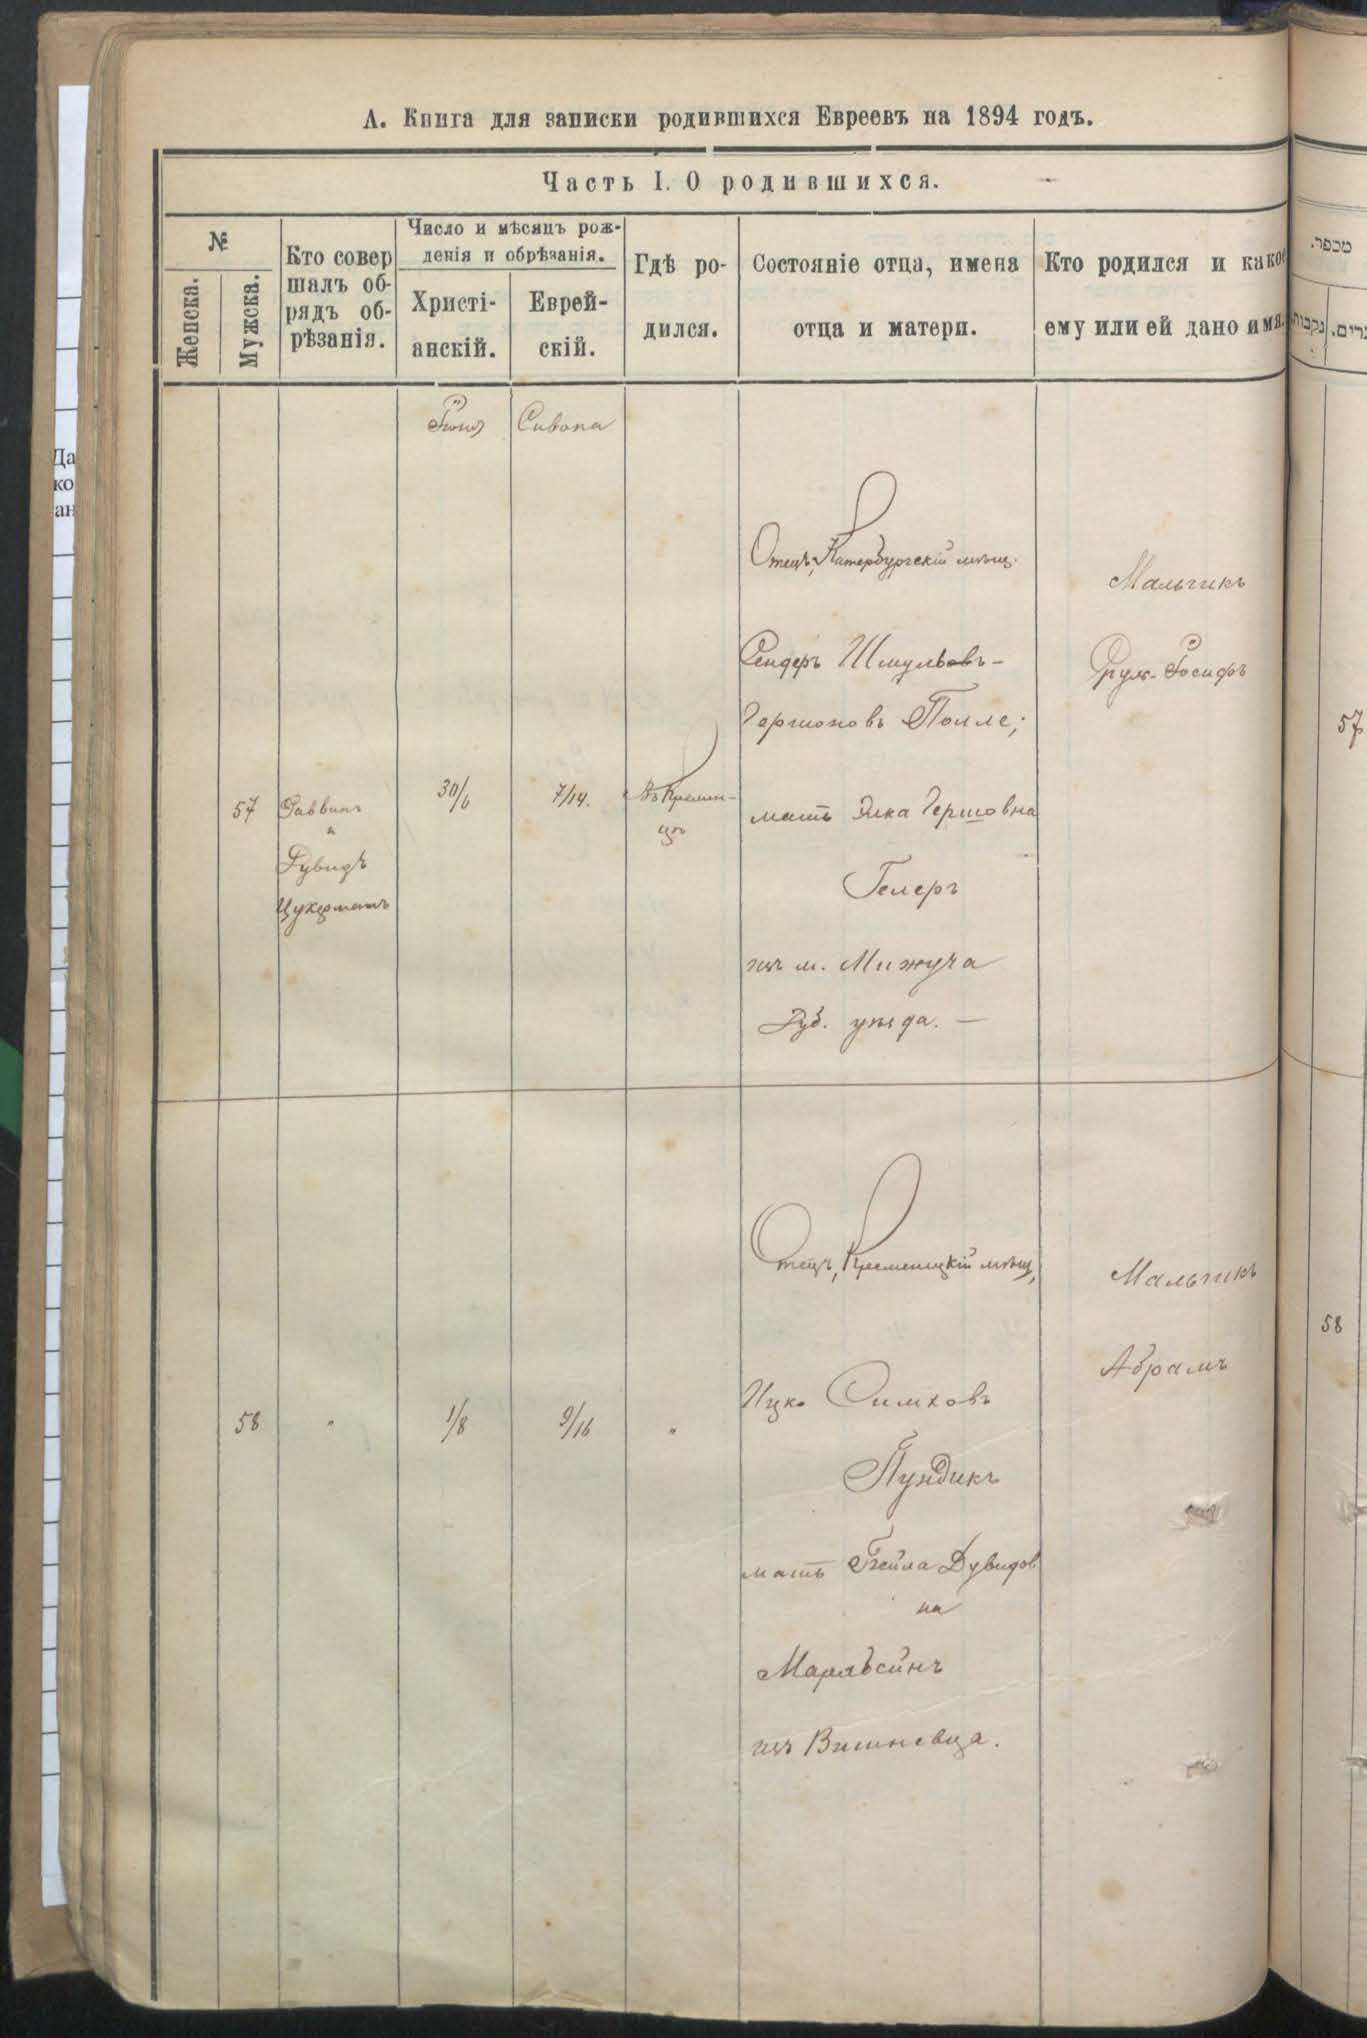 А. Книга для записки родившихся Евреевъ на 1894 годъ.
Часть I. О родившихся.
№
Женска.
Мужска.
Кто совер
шалъ об-
рядъ об-
рѣзанія.
Число и мѣсяцъ рож-
денія и обрѣзанія.
Христі-
анскій.
Еврей-
скій.
Гдѣ ро-
дился.
Состояніе отца, имена
отца и матери.
Кто родился и какое
ему или ей дано имя.
Сивона
57
Раввинъ
и
Дувидъ
Цукерманъ
30/6
7/14.
Въ Кремен-
цѣ
Отецъ, Катербургскій мѣщ.
Сендеръ Шмульовъ-
Гершоновъ Полле;
мать Элка Гершовна
Гелеръ
изъ м. Мизуча
Дуб. уѣзда. —
Мальчикъ
Сруль-Іосифъ
58
"
1/8
9/16
"
Отецъ, Кременецкій мѣщ,
Ицко Симховъ
Пундикъ
мать Бейла Дувидов
на
изъ Вишневца.
Мальчикъ
Абрамъ
מספר.
57
58
Да
ко
ан